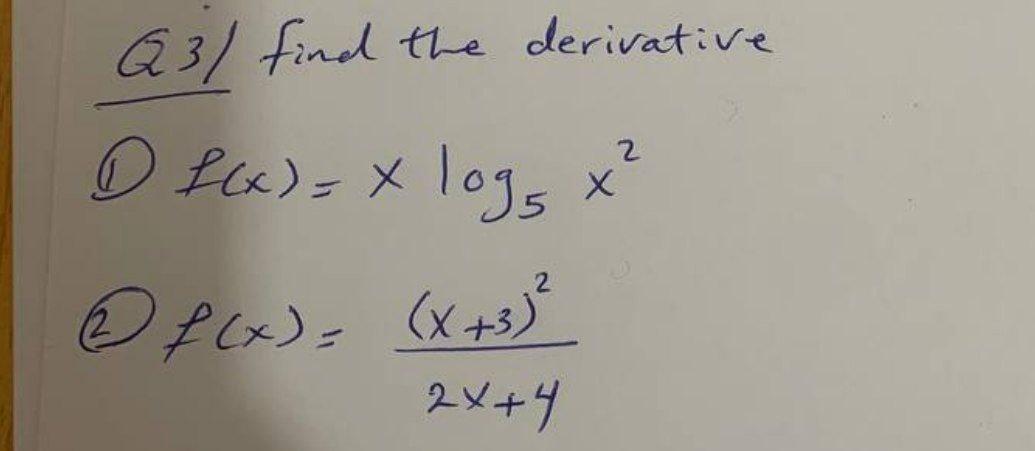 Q3/ find the derivative
① f(x) = x log₅ x²
② f(x) = (x+3)² / 2x+4